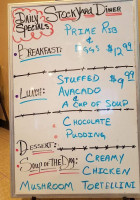 DAILY SPECIALS
STOCKYARD DINER
PRIME RIB &
BREAKFAST: EGGS $12.99
STUFFED $9.99
LUNCH: AVACADO
& A CUP OF SOUP
CHOCOLATE
PUDDING
DESSERT:
SOUP OF THE DAY: CREAMY
CHICKEN
MUSHROOM TORTELLINI